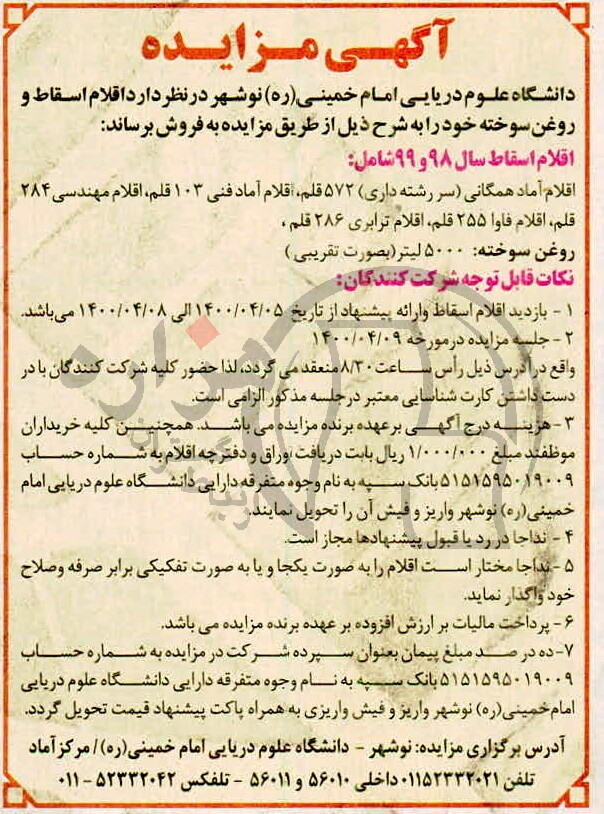 آگهی مزایده
دانشگاه علوم دریایی امام خمینی(ره) نوشهر در نظر دارد اقلام اسقاط و
روغن سوخته خود را به شرح ذیل از طریق مزایده به فروش برساند:
اقلام اسقاط سال ۹۸ و ۹۹ شامل:
اقلام آماد همگانی (سر رشته داری) ۵۷۲ قلم، اقلام آماد فنی ۱۰۳ قلم، اقلام مهندسی ۲۸۴
قلم، اقلام فاوا ۲۵۵ قلم، اقلام ترابری ۲۸۶ قلم ،
روغن سوخته: ۵۰۰۰ لیتر(بصورت تقریبی )
نکات قابل توجه شرکت کنندگان:
۱ - بازدید اقلام اسقاط وارائه پیشنهاد از تاریخ ۱۴۰۰/۰۴/۰۵ الی ۱۴۰۰/۰۴/۰۸ می‌باشد.
۲ - جلسه مزایده در مورخه ۱۴۰۰/۰۴/۰۹
واقع در آدرس ذیل رأس ساعت ۸/۳۰ منعقد می گردد، لذا حضور کلیه شرکت کنندگان با در
دست داشتن کارت شناسایی معتبر در جلسه مذکور الزامی است.
۳ - هزینه درج آگهی بر عهده برنده مزایده می باشد. همچنین کلیه خریداران
موظفند مبلغ ۱/۰۰۰/۰۰۰ ریال بابت دریافت اوراق و دفترچه اقلام به شماره حساب
۵۱۵۱۵۹۵۰۱۹۰۰۹ بانک سپه به نام وجوه متفرقه دارایی دانشگاه علوم دریایی امام
خمینی(ره) نوشهر واریز و فیش آن را تحویل نمایند.
۴ - نداجا در رد یا قبول پیشنهادها مجاز است.
۵ - نداجا مختار است اقلام را به صورت یکجا و یا به صورت تفکیکی برابر صرفه وصلاح
خود واگذار نماید.
۶ - پرداخت مالیات بر ارزش افزوده بر عهده برنده مزایده می باشد.
۷- ده در صد مبلغ پیمان بعنوان سپرده شرکت در مزایده به شماره حساب
۵۱۵۱۵۹۵۰۱۹۰۰۹ بانک سپه به نام وجوه متفرقه دارایی دانشگاه علوم دریایی
امام‌خمینی(ره) نوشهر واریز و فیش واریزی به همراه پاکت پیشنهاد قیمت تحویل گردد.
آدرس برگزاری مزایده: نوشهر - دانشگاه علوم دریایی امام خمینی(ره) / مرکز آماد
تلفن ۰۱۱۵۲۳۳۲۰۲۱ داخلی ۵۶۰۱۰ و ۵۶۰۱۱ - تلفکس ۵۲۳۳۲۰۴۲ - ۰۱۱